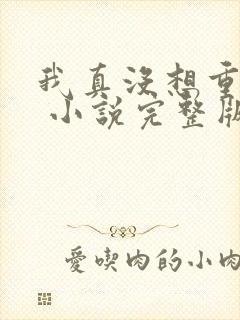 我真没想重
小說完整版
愛喫肉的小肉